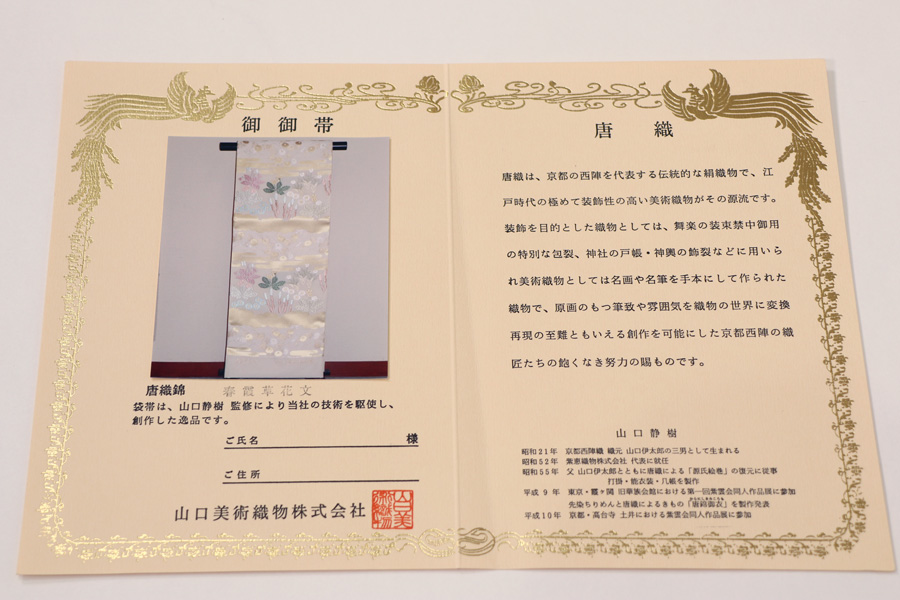 御御帯
唐織錦 春霞草花文
袋帯は、山口静樹 監修により当社の技術を駆使し、
創作した逸品です。
ご氏名 様
ご住所
山口美術織物株式会社
唐織
唐織は、京都の西陣を代表する伝統的な絹織物で、江
戸時代の極めて装飾性の高い美術織物がその源流です。
装飾を目的とした織物としては、舞楽の装束禁中御用
の特別な包裂、神社の戸帳・神輿の飾裂などに用いら
れ美術織物としては名画や名筆を手本にして作られた
織物で、原画のもつ筆致や雰囲気を織物の世界に変換
再現の至難ともいえる創作を可能にした京都西陣の織
匠たちの飽くなき努力の賜ものです。
山口静樹
昭和21年 京都西陣織 織元 山口伊太郎の三男として生まれる
昭和52年 紫恵織物株式会社 代表に就任
昭和55年 父 山口伊太郎とともに唐織による「源氏絵巻」の復元に従事
打掛・能衣装・几帳を製作
平成 9年 東京・霞ヶ関 旧華族会館における第一回紫雲会同人作品展に参加
先染ちりめんと唐織によるきもの「唐縞御衣」を製作発表
平成10年 京都・高台寺 土井における紫雲会同人作品展に参加